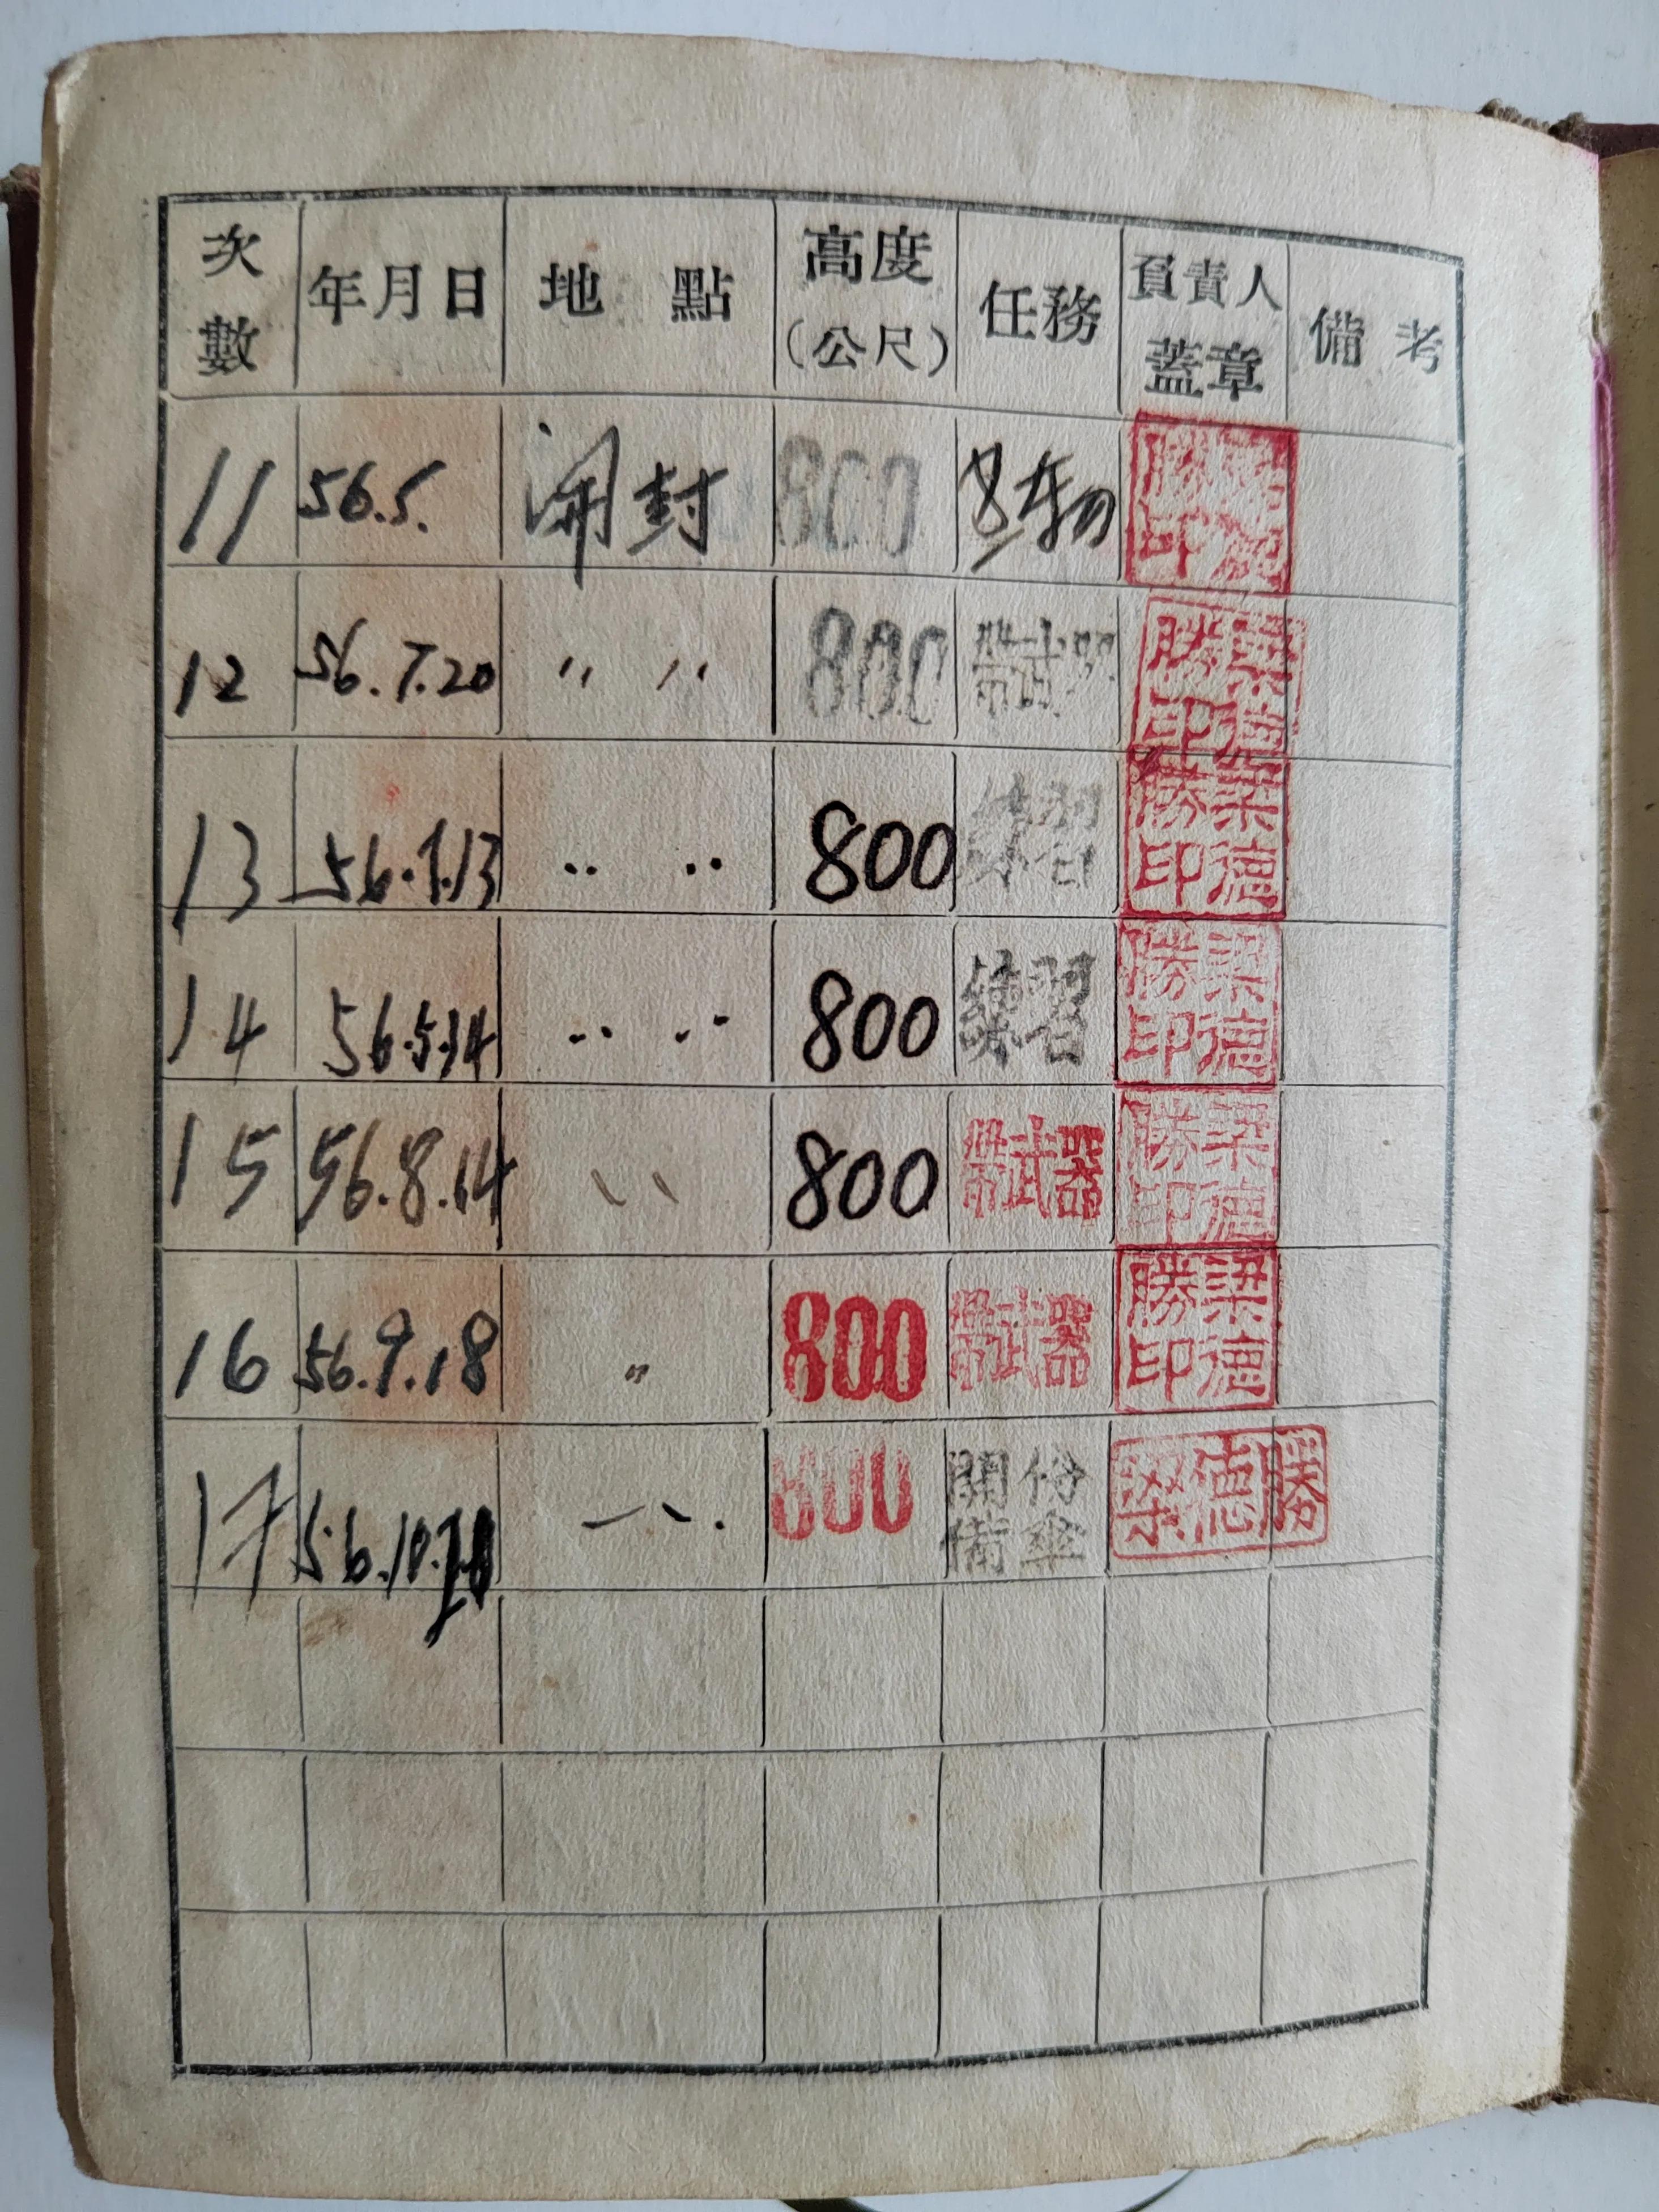 次數 年月日 地點 高度(公尺) 任務 負責人蓋章 備考
11 56.5. 開封 800 勝印
12 56.7.20 〃 〃 800 帶武器 梁德勝印
13 56.7.13 〃 〃 800 練習 梁德勝印
14 56.5.14 〃 〃 800 練習 梁德勝印
15 56.8.14 〃 800 帶武器 梁德勝印
16 56.9.18 〃 800 帶武器 梁德勝印
17 56.10. 〃 800 開備份傘 梁德勝